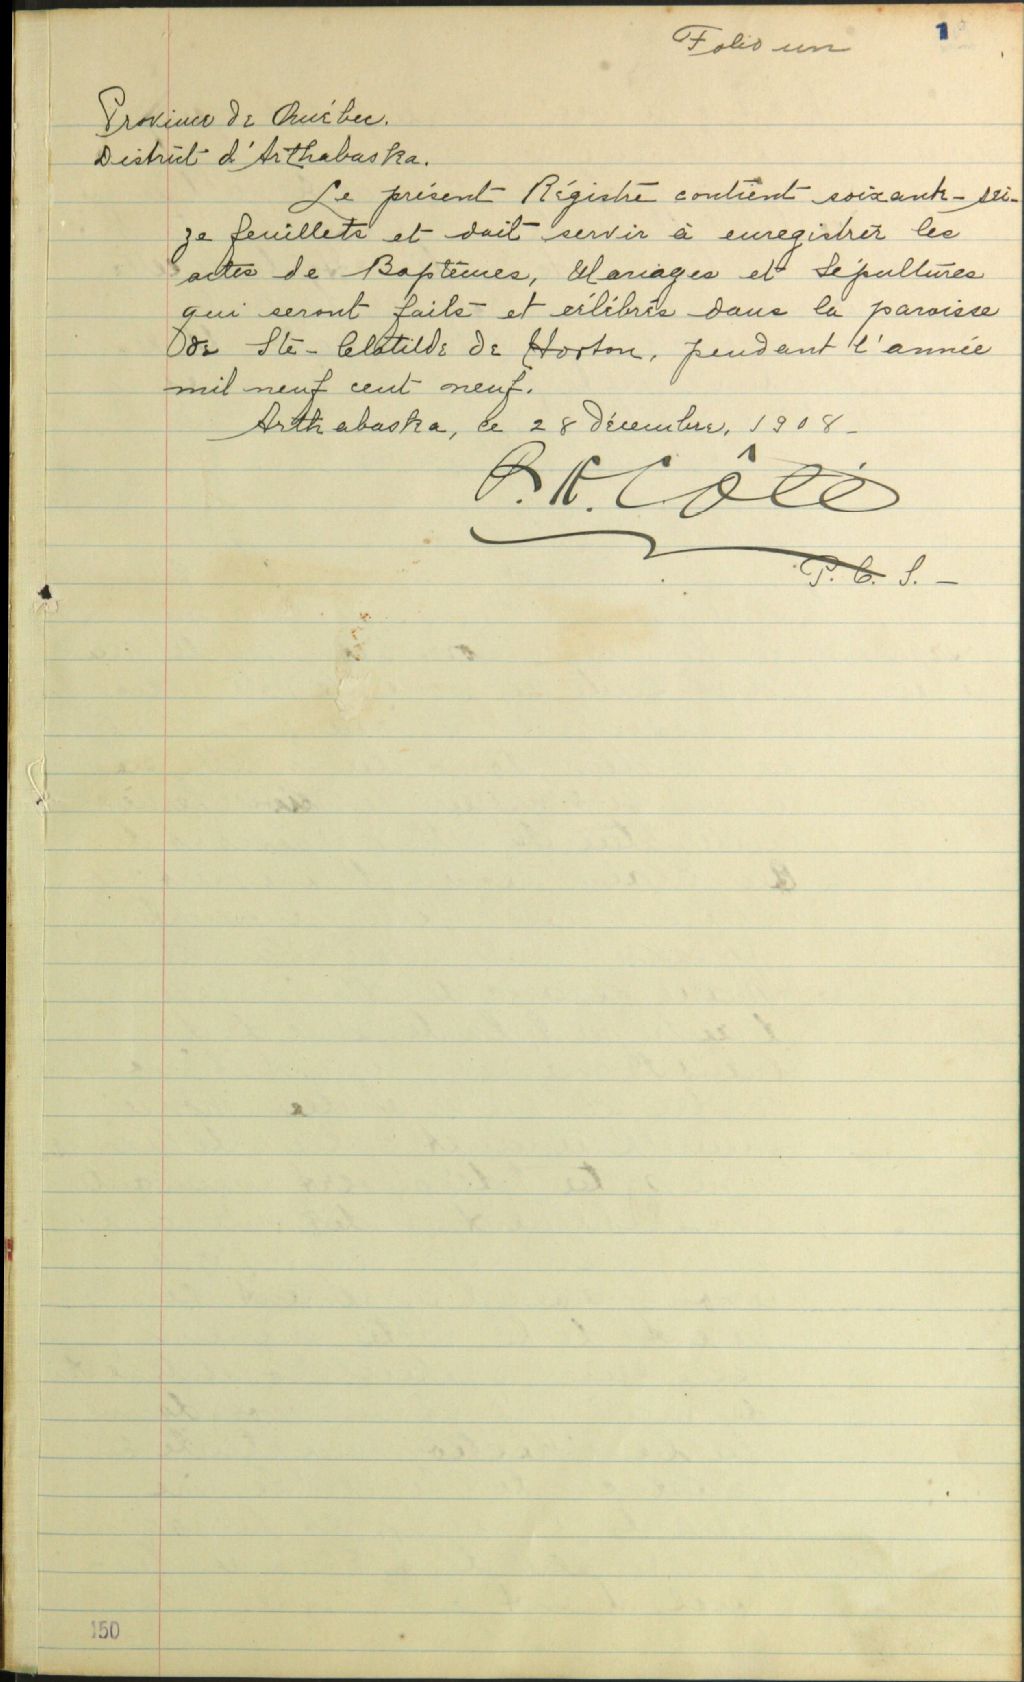 Folio un
1
Province de Québec.
District d'Arthabaska.
Le présent Régistre contient soixante-sei-
ze feuillets et doit servir à enregistrer les
actes de Baptêmes, Mariages et Sépultures
qui seront faits et célébrés dans la paroisse
de Ste-Clotilde de Horton, pendant l'année
mil neuf cent neuf.
Arthabaska, ce 28 décembre, 1908-
P. H. Côté
P. C. S. -
150